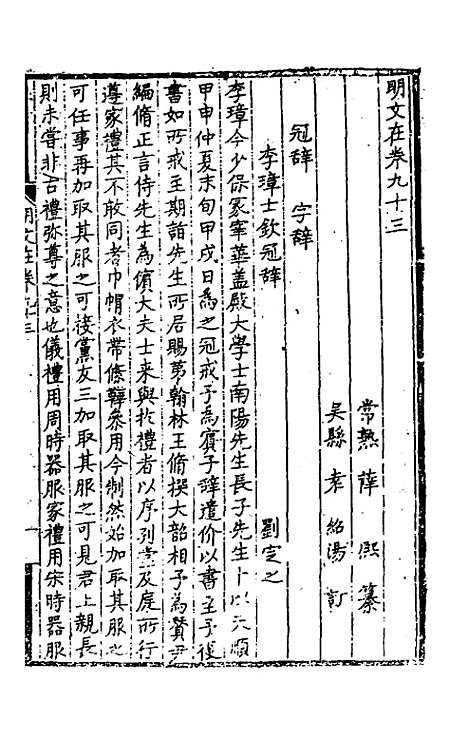 明文在卷九十三
常熟 薛 熙 纂
吳縣 袁 紹湯 訂
冠辭 字辭
李璋士欽冠辭
劉定之
李璋今少保冢宰華蓋殿大學士南陽先生長子先生卜以天順
甲申仲夏末旬甲戌日為之冠戒予為賓予辭遣价以書至予復
書如所戒至期詣先生所居賜第翰林王脩撰大韶相予為贊尹
編脩正言侍先生為儐大夫士來與於禮者以序列堂及庭所行
遵家禮其不敢同者巾帽衣帶絛鞾叅用今制然始加取其服之
可任事再加取其服之可接黨友三加取其服之可見君上親長
則未嘗非古禮彌尊之意也儀禮用周時器服家禮用宋時器服
明文在卷九十三
一